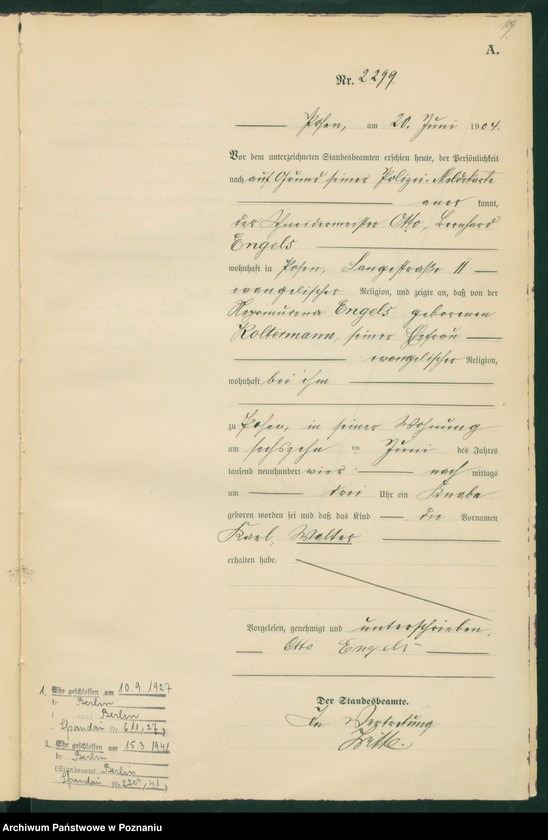 119
A.
Nr. 2299.
Posen, am 20. Juni 1904.
Vor dem unterzeichneten Standesbeamten erschien heute, der Persönlichkeit
nach auf Grund seiner Polizei-Meldekarte
aner kannt,
der Schneidermeister Otto, Bernhard
Engels
wohnhaft in Posen, Langestraße 11
evangelischer Religion, und zeigte an, daß von der
Nepomucena Engels geborenen
Koltermann, seiner Ehefrau
evangelischer Religion,
wohnhaft bei ihm
zu Posen, in seiner Wohnung
am sechszehn ten Juni des Jahres
tausend neunhundert vier nach mittags
um drei Uhr ein Knabe
geboren worden sei und daß das Kind die Vornamen
Karl, Walter
erhalten habe.
Vorgelesen, genehmigt und unterschrieben.
Otto Engels
Der Standesbeamte.
In Vertretung
1. Ehe geschlossen am 10.9.1927
in Berlin
Berlin
Spandau Nr. 611/27)
2. Ehe geschlossen am 15.3.1941
in Berlin
(Standesamt Berlin
Spandau Nr. /41)
Archiwum Państwowe w Poznaniu